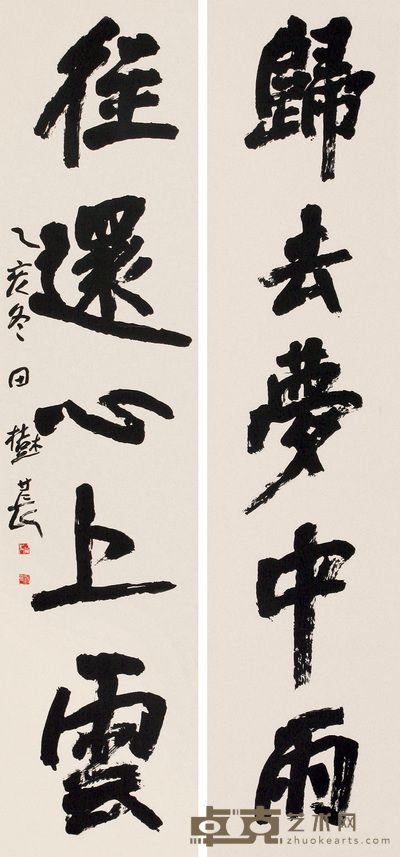 歸去夢中雨
往還心上雲
乙亥冬 田樹萇
卓克艺术网
zhuokearts.com